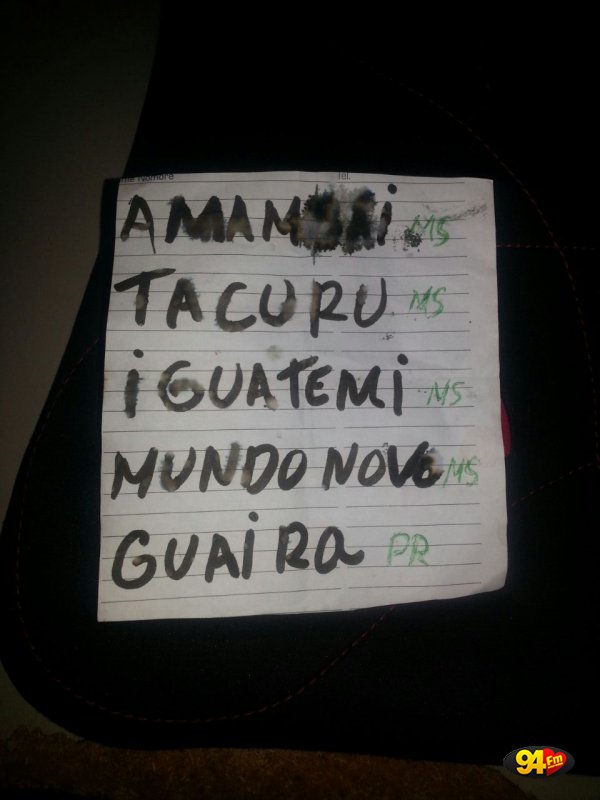 Nombre Tel.
AMAMBAi MS
TACURU MS
iGUATEMi MS
MUNDO NOVO MS
GUAiRa PR
94 Fm